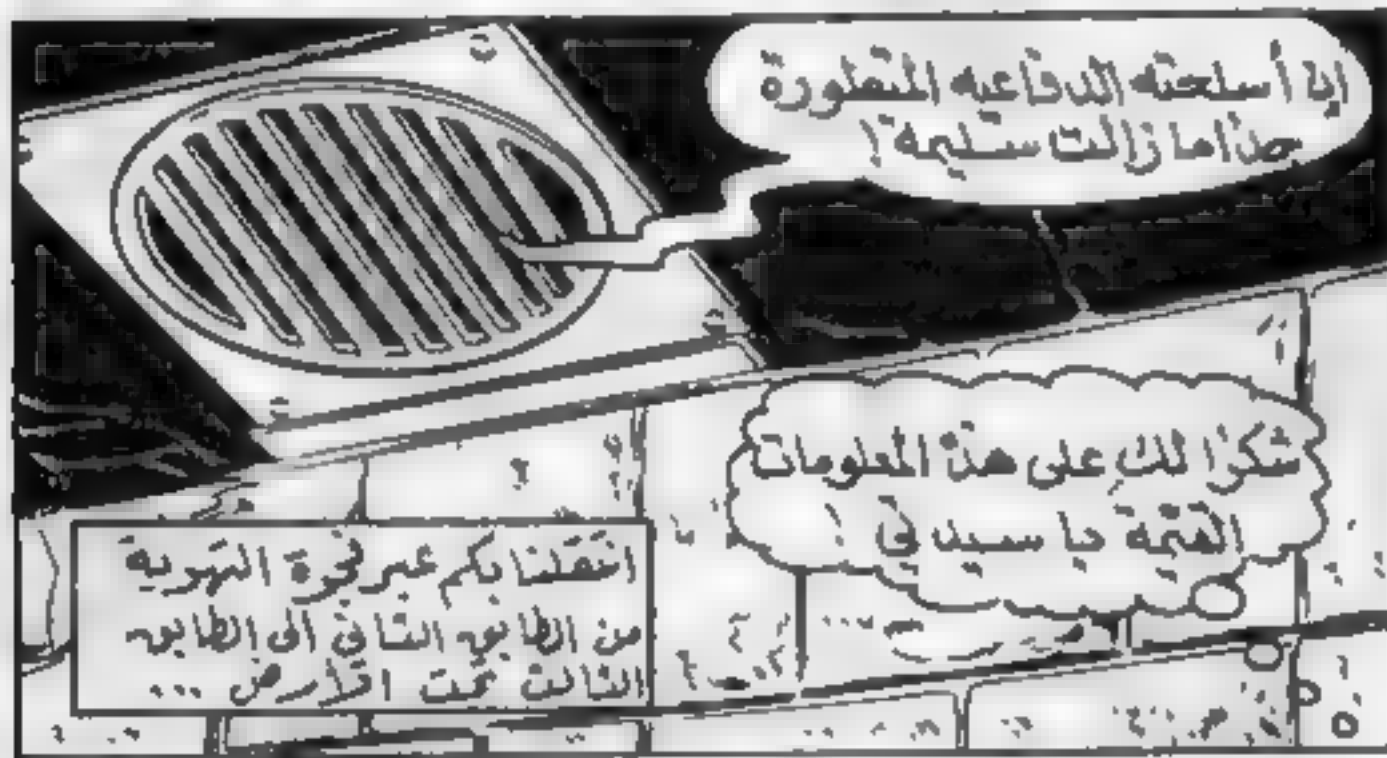 إن أسلحته الدفاعيه المتطورة
جدا ما زالت سليمة !
شكرًا لكِ على هذه المعلومات
القيّمة يا سيدتي !
انتقلنا بكم عبر فجوة التهوية
من الطابق الثاني الى الطابق
الثالث تحت الأرض ...